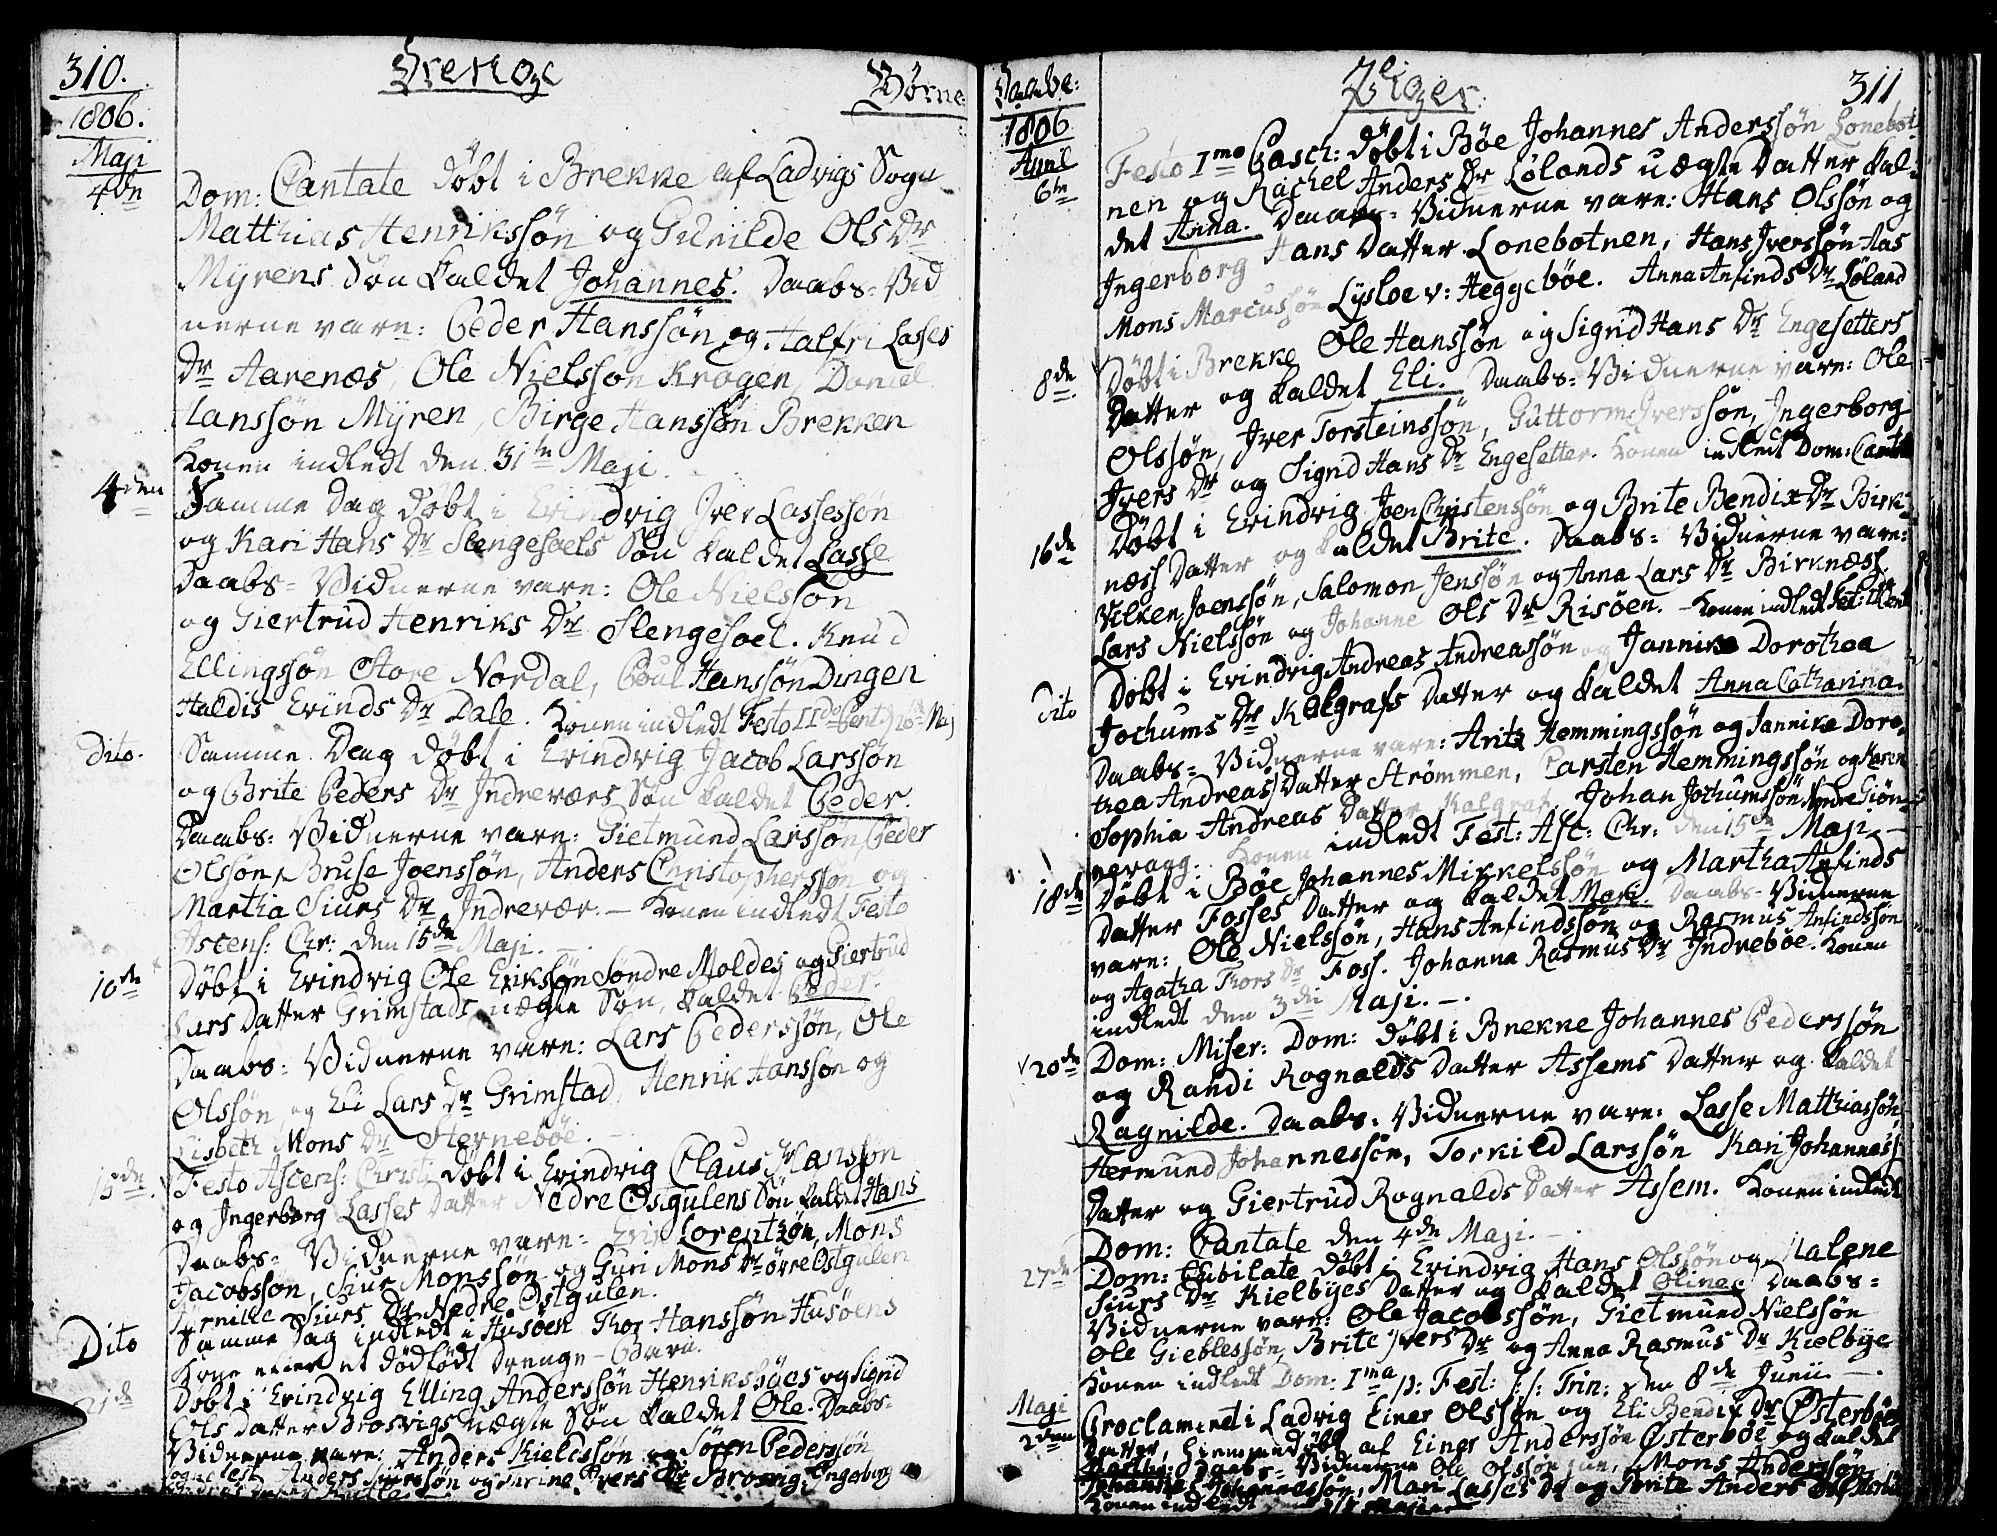 310.
Drenge
Børne
1806.
Maji
4de
Dom: Cantate døbt i Brekke af Ladvigs Sogn
Matthias Henrikssøn og Gunilde Ols Dr
Myrens Søn kaldet Johannes. Daabs-Vid
nerne vare: Peder Hanssøn og Halfri Lasses
Dr Aarenæs, Ole Nielssøn Krogen, Daniel
Hanssøn Myren, Birge Hanssøn Brekken
Konen indledt den 31te Maji.
4den
Samme Dag døbt i Evindvig Iver Lassessøn
og Kari Hans Dr Slengesoels Søn kaldet Lasse
Daabs-Vidnerne vare: Ole Nielssøn
og Giertrud Henriks Dr Slengesoel. Knud
Ellingssøn Store Nordal, Poul Hanssøn Dingen
Haldis Evinds Dr Dale. Konen indledt Festo IIdo Pent: 26 Maj
Dito.
Samme Dag døbt i Evindvig Jacob Larssøn
og Brite Peders Dr Indreværs Søn kaldet Peder.
Daabs-Vidnerne vare: Gietmund Larssøn, Peder
Olssøn, Bruse Joenssøn, Anders Christopherssøn og
Martha Siurs Dr Indrevær. – Konen indledt Festo
Ascens: Chr: den 15de Maji. –
10de
Døbt i Evindvig Ole Erikssøn Søndre Moldes og Giertrud
Lars Datter Grimstads uægte Søn, kaldet Peder.
Daabs-Vidnerne vare: Lars Pederssøn, Ole
Olssøn og Eli Lars Dr Grimstad, Henrik Hanssøn og
Lisbeth Mons Dr Hernebøe.
15de
Festo Ascens: Christi døbt i Evindvig Claus Hanssøn
og Ingerborg Lasses Datter Nedre Østgulens Søn kaldet Hans
Daabs-Vidnerne vare: Erik Lorentzøn, Mons
Jacobssøn, Siur Monssøn og Guri Mons Dr Øvre Østgulen
Pernille Siurs Dr Nedre Østgulen.
Dito
Samme Dag indledt i Husøen Thor Hanssøn Husøens
Kone efter et dødfødt Drenge-Barn.
21de
Døbt i Evindvig Elling Anderssøn Henriksbøes og Sigrid
Ols Datter Brosvigs uægte Søn kaldet Ole. Daabs-
Vidnerne vare: Anders Kieldssøn og Søren Pederssøn
Anders Siurssøn og Ivers Dr Brosvig, Ingeborg
Daabe:
Piger
311
1806
April
6te
Festo Imo Pasch: døbt i Bøe Johannes Anderssøn Lonebot
nen og Rachel Anders Dr Lølands uægte Datter kal-
det Anna. Daabs-Vidnerne vare: Hans Olssøn og
Ingerborg Hans Datter Lonebotnen, Hans Iverssøn Aas
Mons Marcussøn Lysloe v: Heggebøe. Anna Anfinds Dr Løland
8de
Døbt i Brekke Ole Hanssøn og Sigrid Hans Dr Engesetters
Datter og kaldet Eli. Daabs-Vidnerne vare: Ole
Olssøn, Iver Torsteinssøn, Guttorm Iverssøn, Ingerborg
Ivers Dr og Sigrid Hans Dr Engesetter. Konen indledt Dom: Cantate
16de
Døbt i Evindvig Joen Christenssøn og Brite Bendix Dr Birk-
næss Datter og kaldet Brite. Daabs-Vidnerne vare:
Vilken Joenssøn, Salomon Jenssøn og Anna Lars Dr Birknæss
Lars Nielssøn og Johanne Ols Dr Risøen. – Konen indledt
Dito
Døbt i Evindvig Andreas Andreassøn og Jannike Dorothea
Jochums Dr Kalgrafs Datter og kaldet Anna Catharina.
Daabs-Vidnerne vare: Aritz Hemmingssøn og Jannike Doro-
thea Andreas Datter Strømmen, Carsten Hemmingssøn og Karen
Sophia Andreas Datter Kalgraf, Johan Jochumssøn Nedre Giøn-
neragg. Konen indledt Fest: Asc: Chr: den 15de Maji –
18de
Døbt i Bøe Johannes Mikkelssøn og Martha Anfinds
Datter Fosses Datter og kaldet Mari. Daabs-Vidnerne
vare: Ole Nielssøn, Hans Anfindssøn og Rasmus Anfindssøn
og Agatha Thors Dr Foss. Johanna Rasmus Dr Indrebøe. Konen
indledt den 3die Maji. –
20de
Dom: Miser: Dom: døbt i Brekke Johannes Pederssøn
og Randi Rognalds Datter Assems Datter og kaldet
Ragnilde. Daabs-Vidnerne vare: Lasse Matthiassøn,
Hermund Johannessøn, Torkild Larssøn Kari Johannes
Datter og Giertrud Rognalds Datter Assem. Konen indledt
Dom: Cantate den 4de Maji. –
27de
Dom: Jubilate døbt i Evindvig Hans Olssøn og Malene
Siurs Dr Kielbyes Datter og kaldet Oline. Daabs-
Vidnerne vare: Ole Jacobssøn, Gietmund Nielssøn
Ole Gieblessøn, Brite Ivers Dr og Anna Rasmus Dr Kielbye
Konen indledt Dom: Ima p: Fest: S: S: Trin: den 8de Junii. –
Maji
2den
Proclameret i Ladvig Einer Olssøn og Eli Bendix Dr Østerbøes
Datter, hiemmedøbt af Einer Anderssøn Østerbøe og kaldet
Martha. Daabs-Vidnerne Ole Olssøn, Mons Anderssøn,
Johannes Johannessøn, Mari Lasses Dr og Brite Anders Dr
Konen indledt